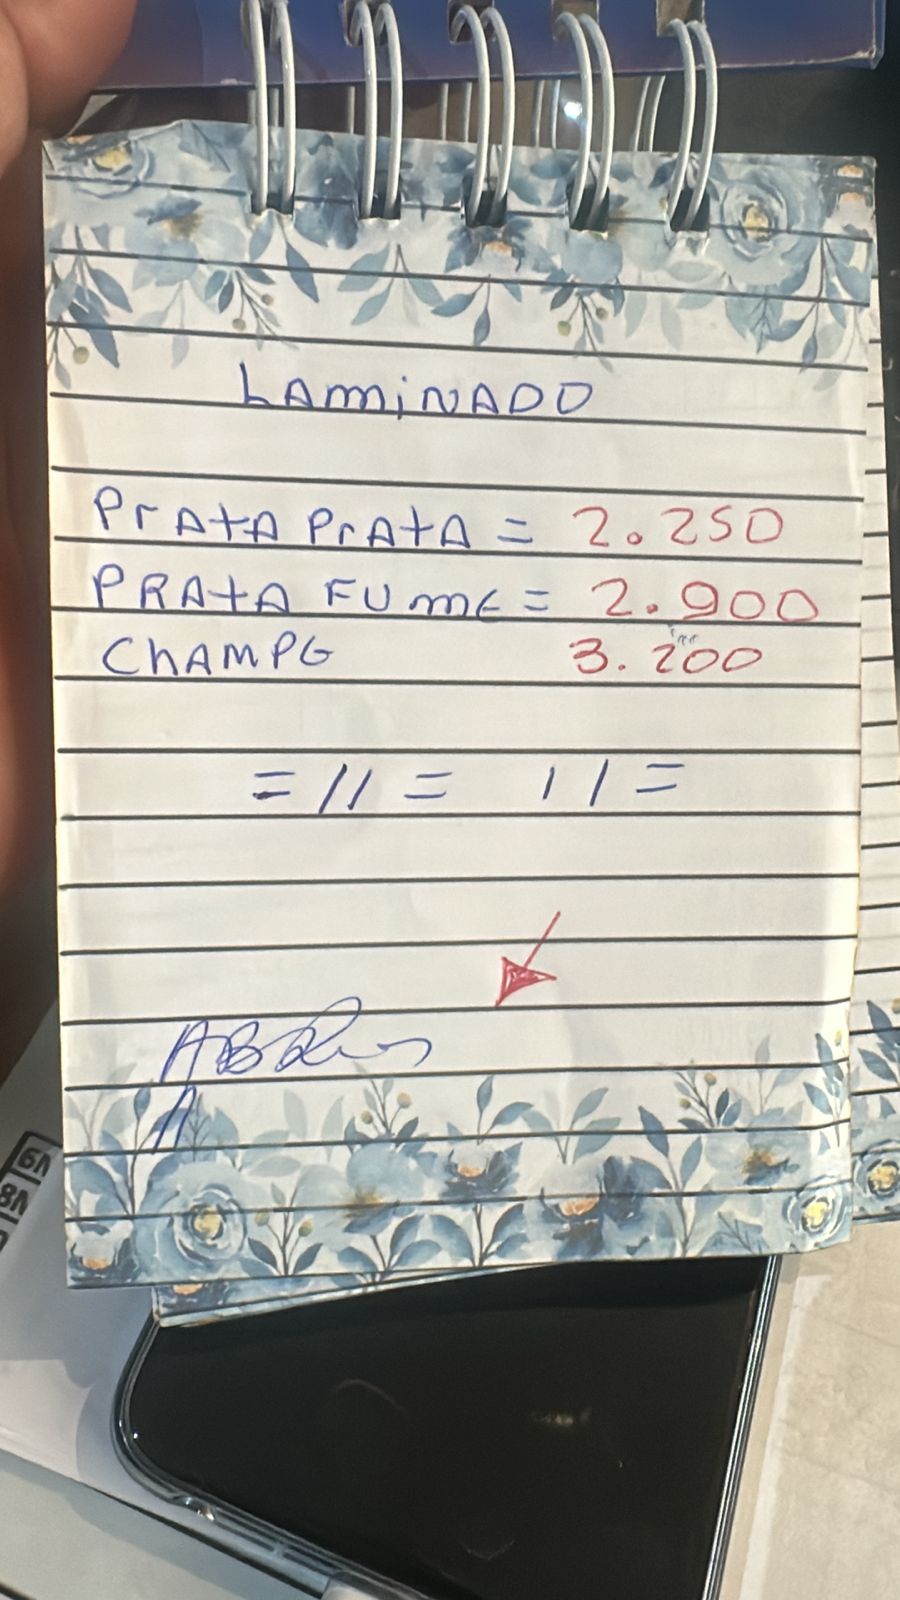 LAMiNADO
PrAtA PrAtA = 2.250
PRAtA FUME = 2.900
ChAMPG 3.200
= // = // =
A
V9
V8